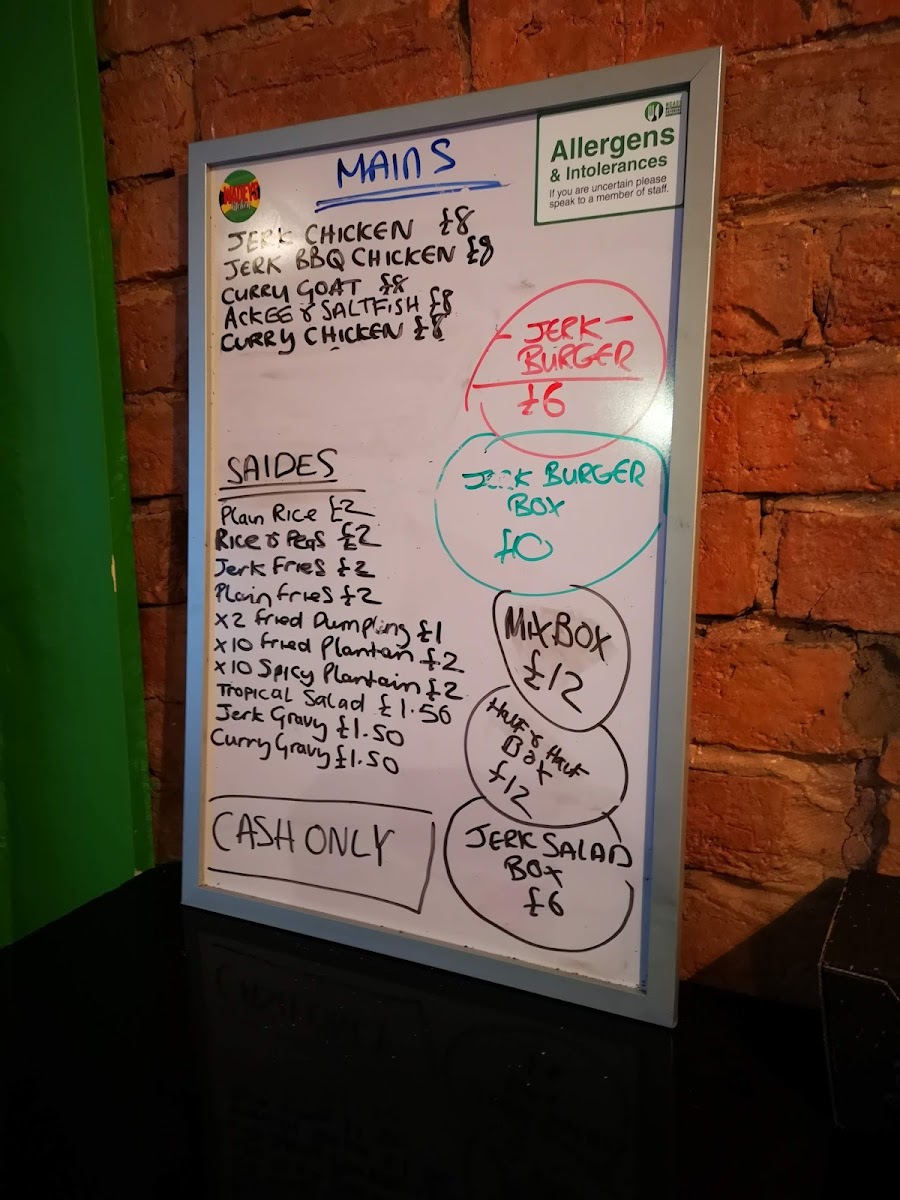 MAINS
JERK CHICKEN £8
JERK BBQ CHICKEN £8
CURRY GOAT £8
ACKEE & SALTFISH £8
CURRY CHICKEN £8
SAIDES
Plain Rice £2
Rice & Peas £2
Jerk Fries £2
Plain Fries £2
x2 Fried Dumpling £1
x10 Fried Plantain £2
x10 Spicy Plantain £2
Tropical Salad £1.50
Jerk Gravy £1.50
Curry Gravy £1.50
CASH ONLY
Allergens
& Intolerances
If you are uncertain please
speak to a member of staff.
- JERK -
BURGER
£6
JERK BURGER
BOX
£10
MIX BOX
£12
HALF & HALF
BOX
£12
JERK SALAD
BOX
£6